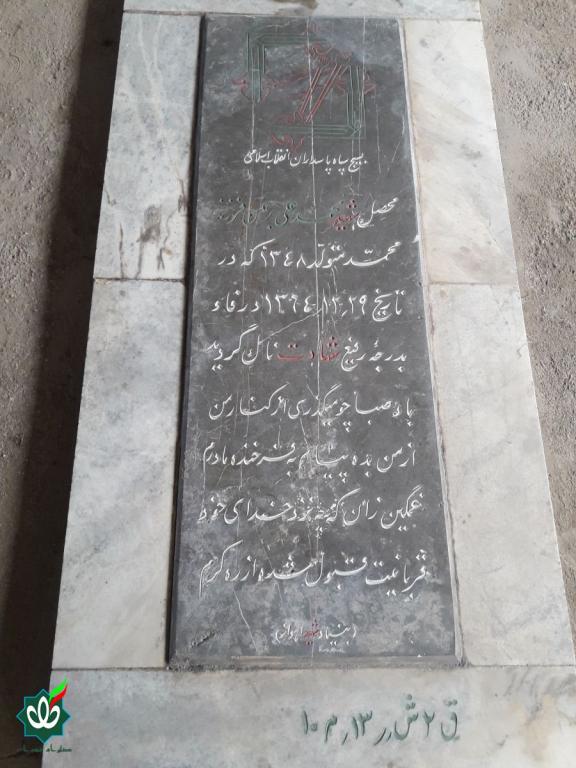 بسیج سپاه پاسداران انقلاب اسلامی
محصل شهید علی فرزند
محمد متولد ۱۳۴۸ که در
تاریخ ۱۳۶۴٫۱۲٫۲۹ در فاو
بدرجهٔ رفیع شهادت نائل گردید
باد صبا چو میگذری از کنار من
از من بده پیام به فرخنده مادرم
غمگین زان که نزد خدای خود
قربانیت قبول شده از ره کرم
(بنیاد شهید اهواز)
ق ۲ ش ر ۱۳٫ م ۱۰